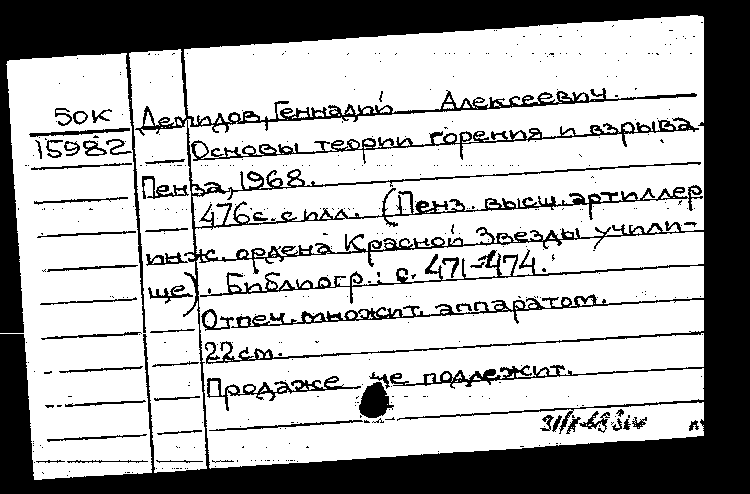 50К Демидов, Геннадий Алексеевич.
15982 Основы теории горения и взрыва.
Пенза, 1968.
476с. с илл. (Пенз. высш. артиллер
инж. ордена Красной Звезды учили-
ще). Библиогр.: с. 471-474.
Отпеч. множит. аппаратом.
22см.
Продаже не подлежит.